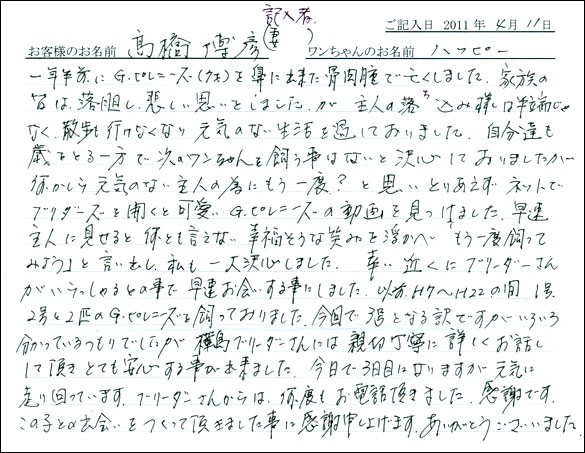 記入者
(妻)
ご記入日 2011年 4月 11日
お客様のお名前 高橋 博彦 ワンちゃんのお名前 ハッピー
一年半前にG.ピレニーズ(クォ)を鼻に出来た骨肉腫で亡くしました。家族の
皆は、落胆し、悲しい思いをしましたが 主人の落ち込み様は半端じゃ
なく、散歩も行けなくなり 元気のない生活を過しておりました。自分達も
歳をとる一方で次のワンちゃんを飼う事はないと決心しておりましたが
何かしら元気のない主人の為にもう一度?と思い とりあえず ネットで
ブリーダーズを開くと可愛いG.ピレニーズの動画を見つけました。早速
主人に見せると 何とも言えない幸福そうな笑みを浮かべ「もう一度飼って
みよう」と言い出し、私も一大決心しました。幸い 近くにブリーダーさん
がいらっしゃるとの事で 早速お会いする事にしました。以前、H7〜H22の間 1号、
2号と2匹のG.ピレニーズを飼っておりました。今回で3号となる訳ですがいろいろ
分かっているつもりでしたが 樺島ブリーダーさんには 親切丁寧に詳しくお話し
して頂き とても安心する事が出来ました。今日で3日目になりますが元気に
走り回っています。ブリーダーさんからは、何度もお電話頂きました。感謝です。
この子との出会いをつくって頂きました事に感謝申し上げます。ありがとうございました。